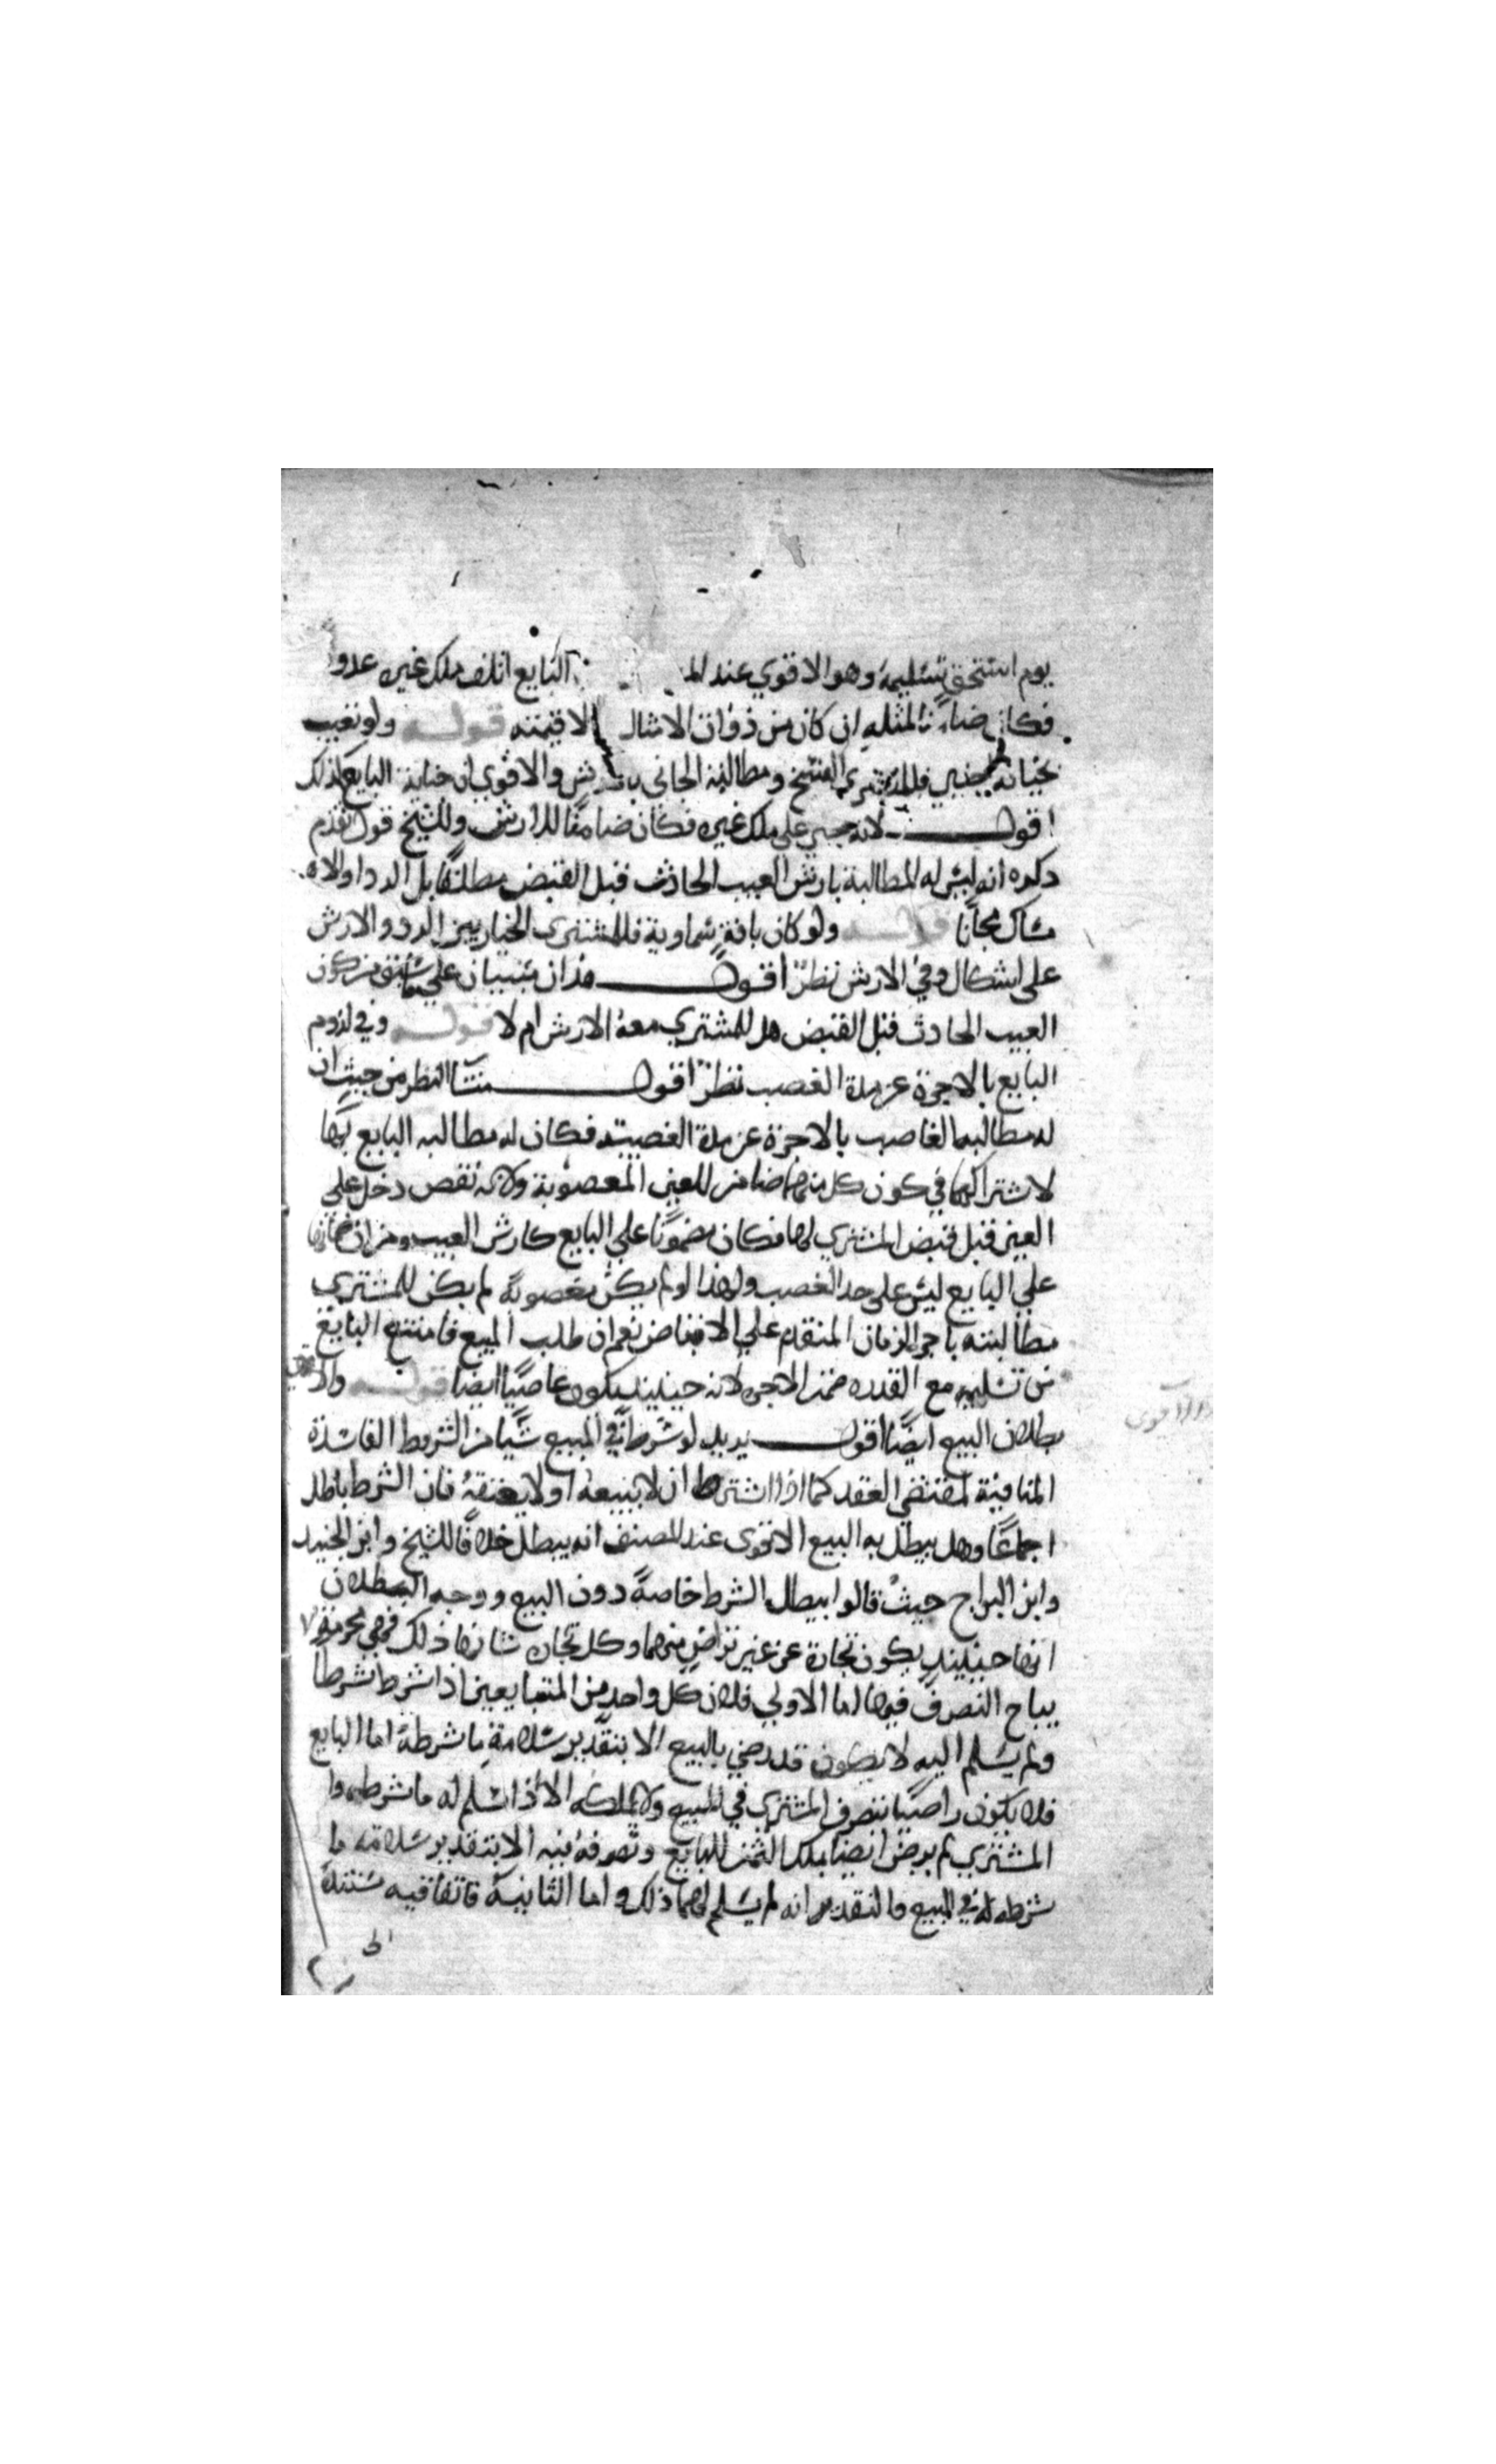 يوم استحق تسليمه وهو الاقوي عند الم البايع اتلف ملك غيره عدو
فكان ضامنا لمثله ان كان من ذوات الامثال الاقيمته قوله ولو تعيب
بجناية اجنبي فللمشتري الفسخ ومطالبة الجاني بالارش والاقوي ان جناية البايع كذلك
اقول لانه جني علي ملك غيره فكان ضامنا للارش وللشيخ قول تقدم
ذكره انه ليس له المطالبة بارش العيب الحادث قبل القبض مطلقا بل الرد او الام
ساك مجانا قوله ولو كان بافة سماوية فللمشتري الخيار بين الرد والارش
علي اشكال وفي الارش نظر اقول هذان مبنيان علي ما سبق من كون
العيب الحادث قبل القبض هل للمشتري معه الارش ام لا قوله وفي لزوم
البايع بالاجرة عن مدة الغصب نظر اقول منشا النظر من حيث ان
له مطالبة الغاصب بالاجرة عن مدة الغصبية فكان له مطالبه البايع بها
لاشتراكهما في كون كل منهما ضامن للعين المغصوبة ولانه نقص دخل علي
العين قبل قبض المشتري لها فكان مضمونا علي البايع كارش العيب ومن ان ضمانها
علي البايع ليس علي حد الغصب ولهذا لو لم يكن مغصوبة لم يكن للمشتري
مطالبته باجرة الزمان المتقدم علي الاقباض نعم ان طلب المبيع فامتنع البايع
من تسليمه مع القدره ضمن الاجره لانه حينيذ يكون غاصبا ايضا قوله والاقوي
بطلان البيع ايضا اقول يريد لو شرط في المبيع شيا من الشروط الفاسدة
المنافية لمقتضي العقد كما اذا اشترط ان لا يبيعه او لا يعتقه فان الشرط باطل
اجماعا وهل يبطل به البيع الاقوى عند المصنف انه يبطل خلافا للشيخ وابن الجنيد
وابن البراج حيث قالوا ببطال الشرط خاصة دون البيع ووجه البطلان
انها حينيذ يكون تجارة عن غير تراض منهما وكل تجارة شانها ذلك فهي محرمة لا
يباح التصرف فيها اما الاولي فلان كل واحد من المتبايعين اذا شرط شرطا
ولم يسلم اليه لا يكون قد رضي بالبيع الا بتقدير سلامة ما شرطه اما البايع
فلا يكون راضيا بتصرف المشتري في المبيع ولا يملكه الا اذا سلم له ما شرطه وا
المشتري لم يرض ايضا بملك الثمن للبايع وتصرفه فيه الا بتقدير سلامة ما
شرطه له في المبيع والتقدير انه لم يسلم لهما ذلك واما الثانية فاتفاقيه مستندة
الى